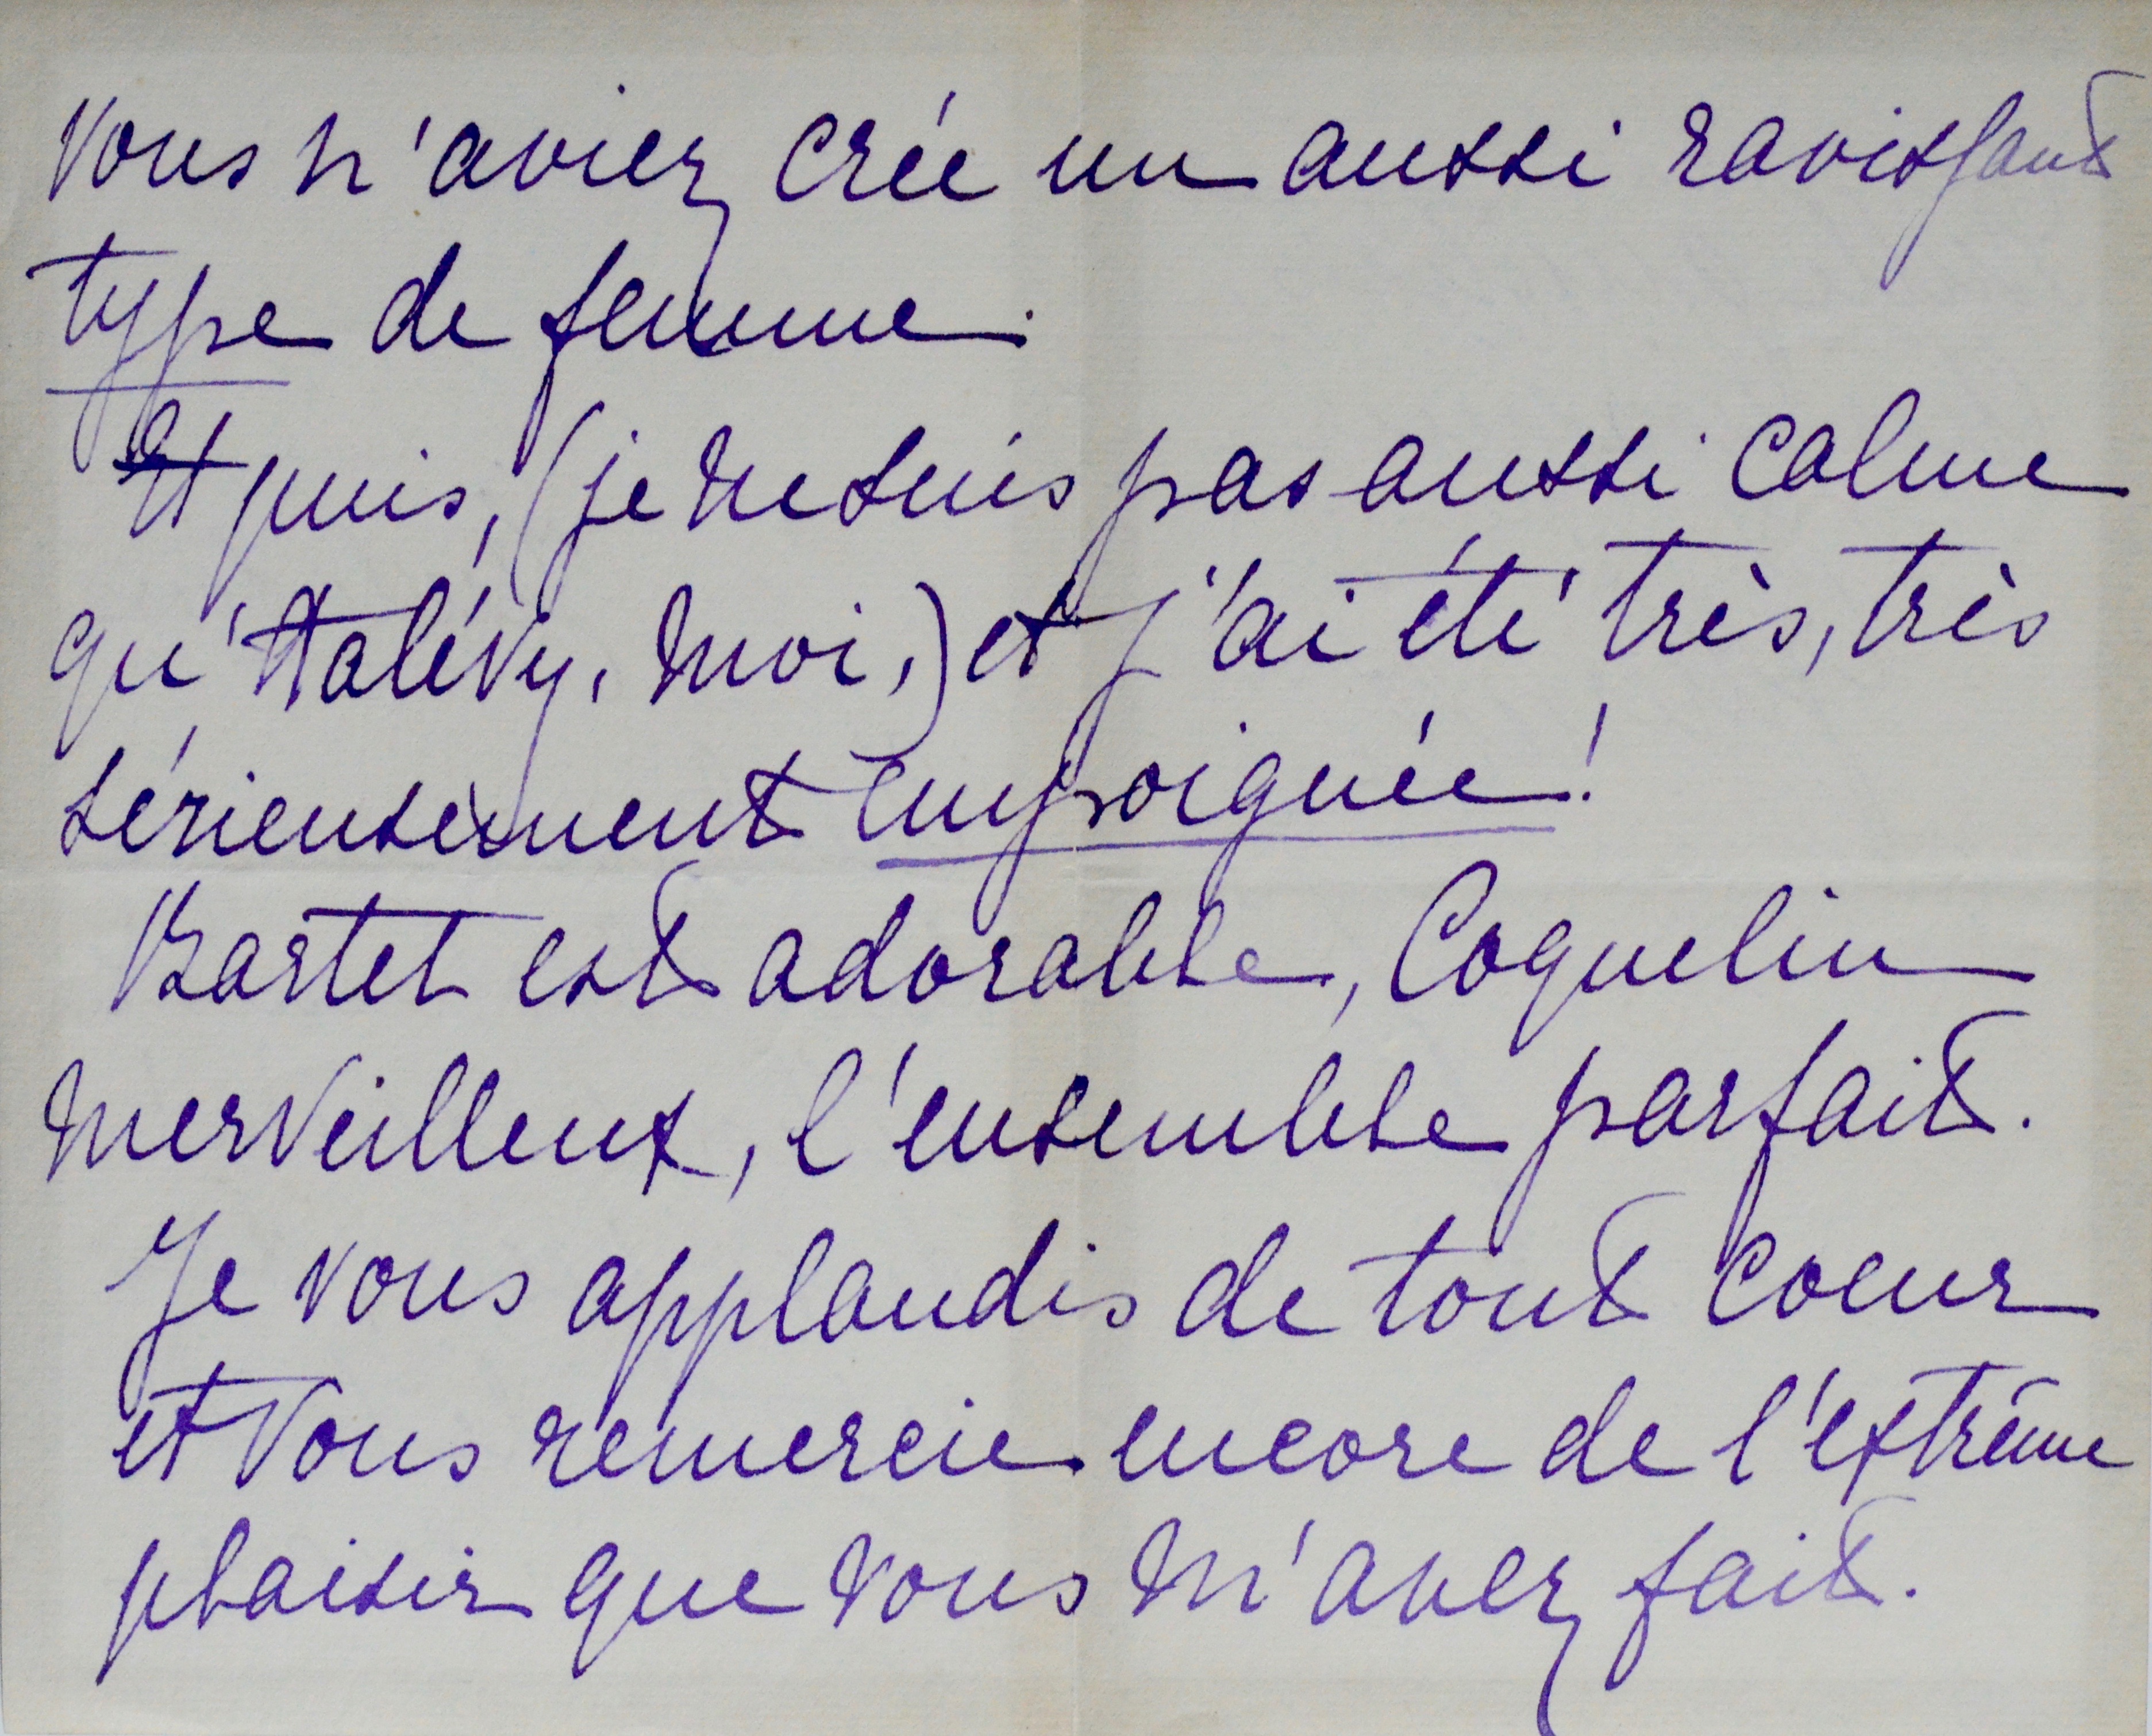 Vous n'aviez crée un aussi ravissant
type de femme.
Et puis, (je ne suis pas aussi calme
qu'Halévy, moi,) et j'ai été très, très
sérieusement empoignée!
Bartet est adorable, Coquelin
merveilleux, l'ensemble parfait.
Je vous applaudis de tout coeur
et vous remercie encore de l'extrême
plaisir que vous m'avez fait.